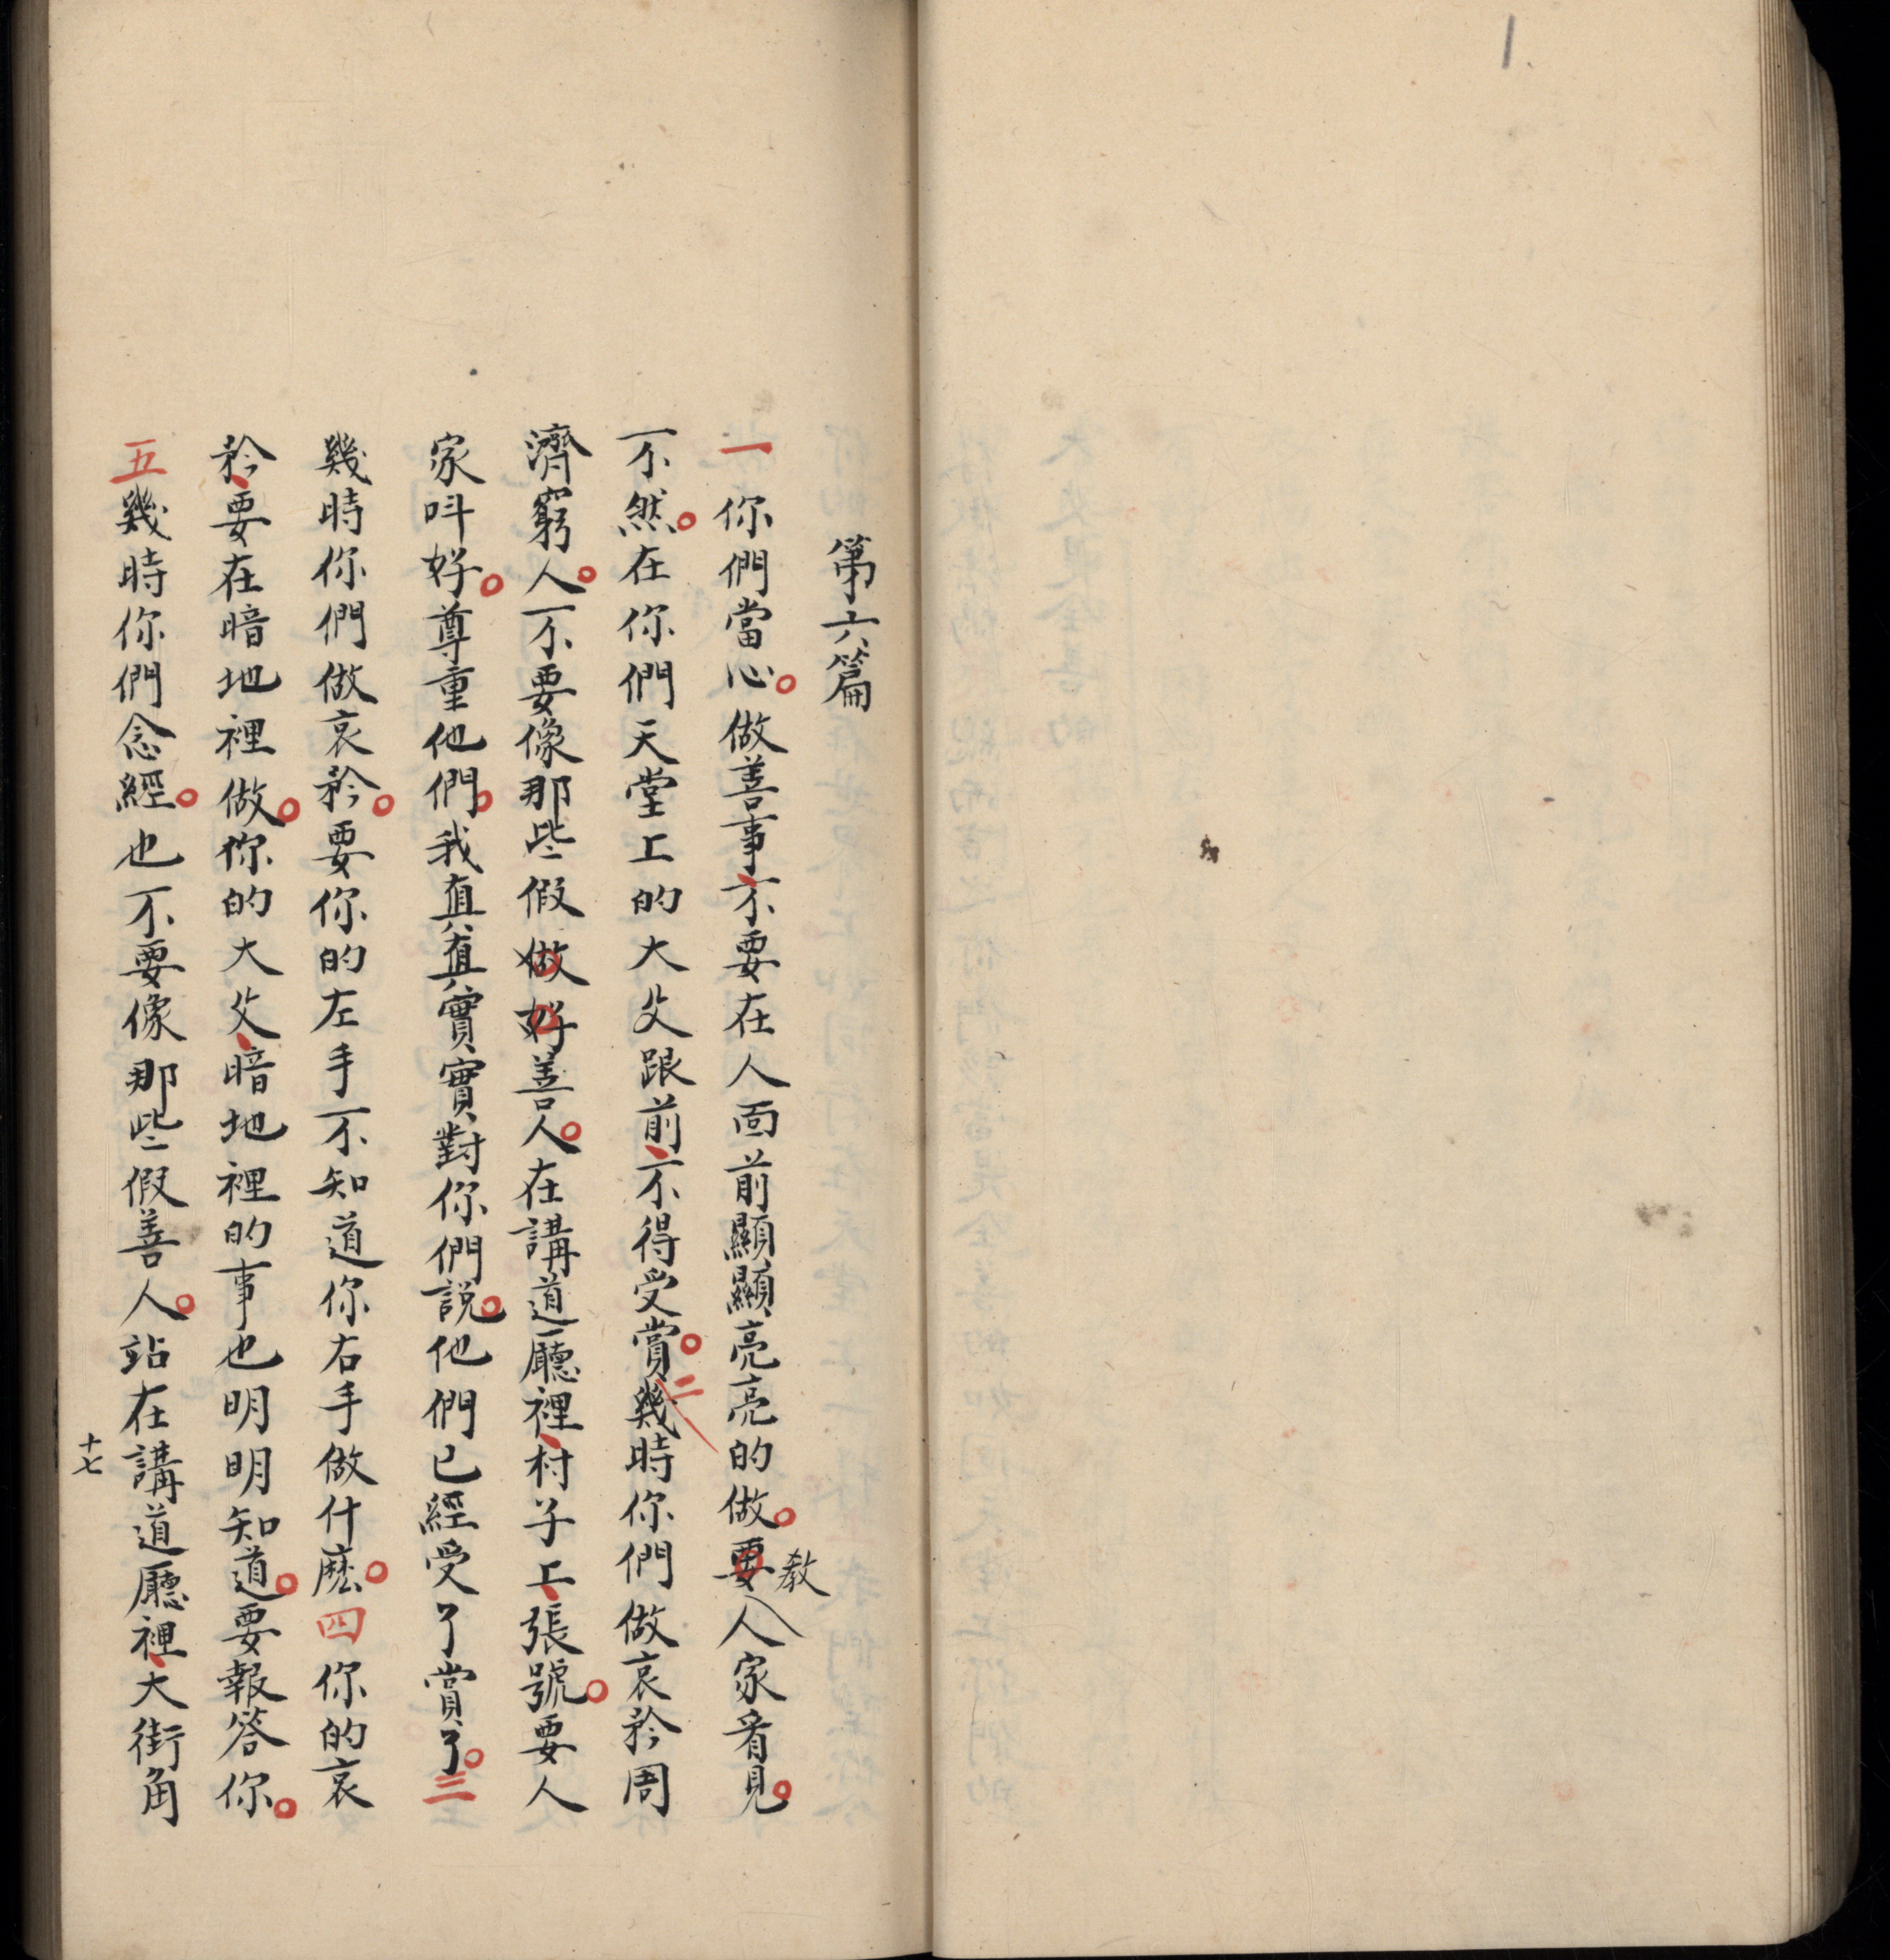 第六篇
一你們當心。做善事、不要在人面前顯顯亮亮的做。要教人家看見。
不然。在你們天堂上的大父跟前、不得受賞。二幾時你們做哀矜周
濟窮人。不要像那些假做好善人。在講道廳裡、村子上、張號。要人
家呌好。尊重他們。我真真實實對你們説。他們已經受了賞了。三
幾時你們做哀矜。要你的左手不知道你右手做什麽。四你的哀
矜、要在暗地裡做。你的大父、暗地裡的事也明明知道。要報答你。
五幾時你們念經。也不要像那些假善人。站在講道廳裡、大街角
十七